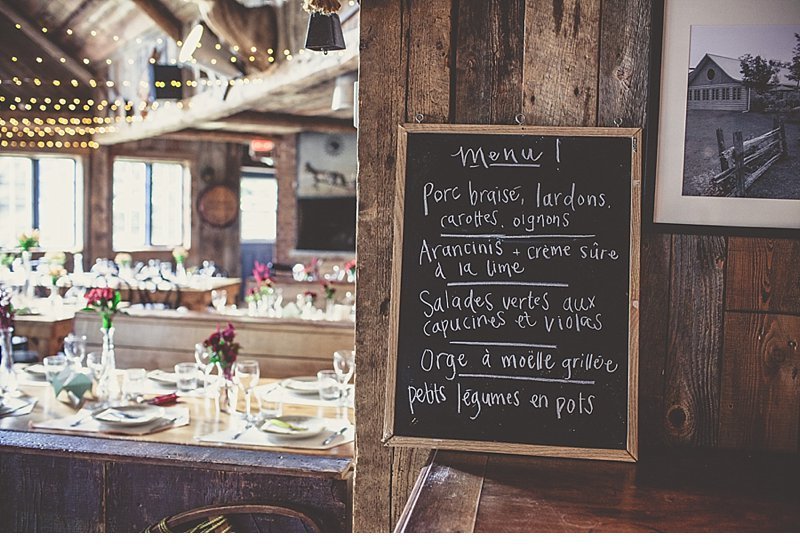 menu !
Porc braisé, lardons,
carottes, oignons
Arancinis + crème sûre
à la lime
Salades vertes aux
capucines et violas
Orge à moëlle grillée
petits légumes en pots